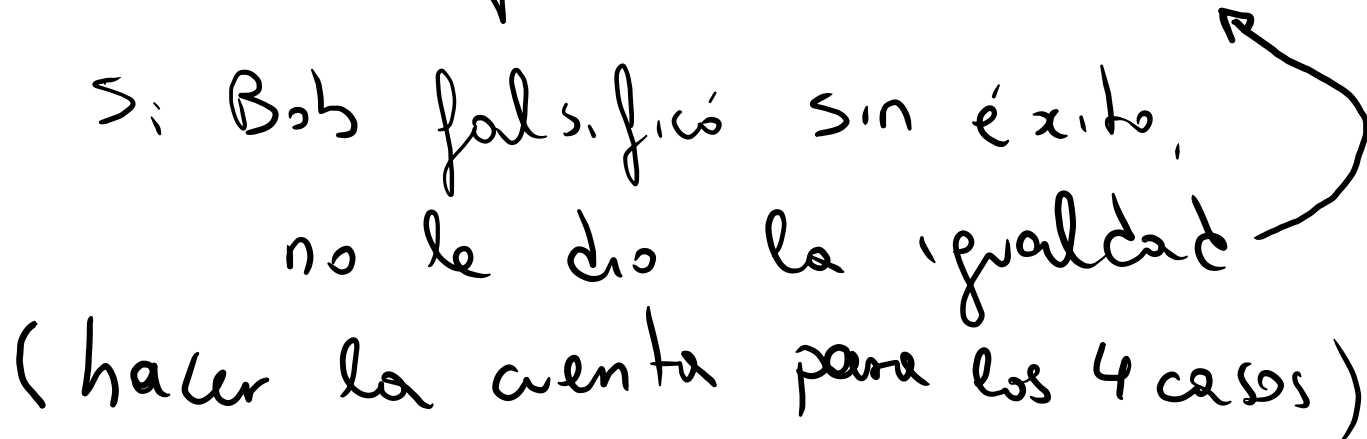 Si Bob falsificó sin éxito,
no le dio la igualdad
(hacer la cuenta para los 4 casos)